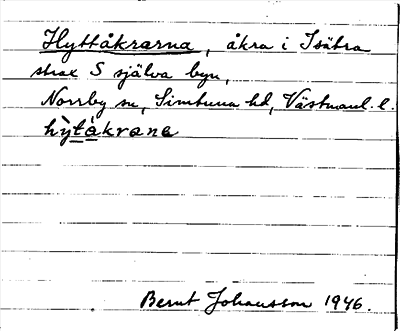 Hyttåkrarna, åkra i Isätra
strax S själva byn,
Norrby sn, Simtuna hd, Västmanl. l.
hỳtåkrana
Bernt Johansson 1946.